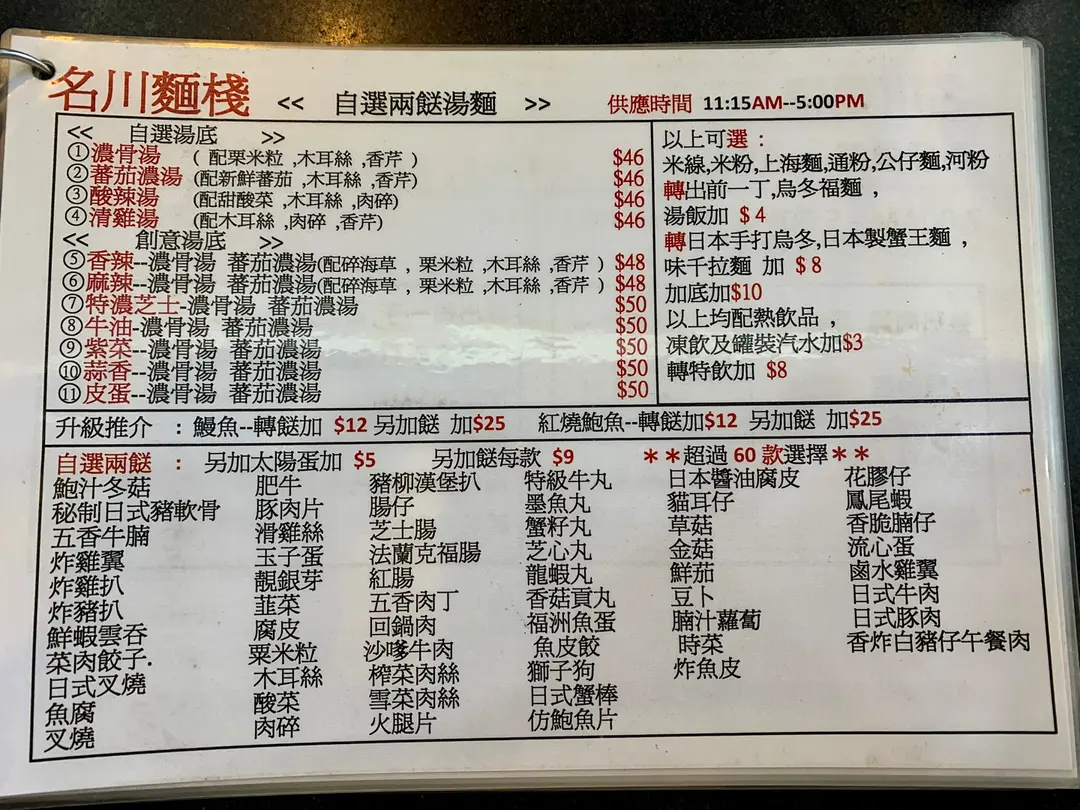 名川麵棧 << 自選兩餸湯麵 >> 供應時間 11:15AM--5:00PM
<< 自選湯底 >>
①濃骨湯 ( 配栗米粒 ,木耳絲 ,香芹 ) $46
②蕃茄濃湯 (配新鮮蕃茄 ,木耳絲 ,香芹) $46
③酸辣湯 (配甜酸菜 ,木耳絲 ,肉碎) $46
④清雞湯 (配木耳絲 ,肉碎 ,香芹) $46
<< 創意湯底 >>
⑤香辣--濃骨湯 蕃茄濃湯(配碎海草 , 栗米粒 ,木耳絲 ,香芹 ) $48
⑥麻辣--濃骨湯 蕃茄濃湯(配碎海草 , 栗米粒 ,木耳絲 ,香芹 ) $48
⑦特濃芝士-濃骨湯 蕃茄濃湯 $50
⑧牛油-濃骨湯 蕃茄濃湯 $50
⑨紫菜--濃骨湯 蕃茄濃湯 $50
⑩蒜香--濃骨湯 蕃茄濃湯 $50
⑪皮蛋--濃骨湯 蕃茄濃湯 $50
以上可選 :
米線,米粉,上海麵,通粉,公仔麵,河粉
轉出前一丁,烏冬福麵 ,
湯飯加 $4
轉日本手打烏冬,日本製蟹王麵 ,
味千拉麵 加 $8
加底加$10
以上均配熱飲品 ,
凍飲及罐裝汽水加$3
轉特飲加 $8
升級推介 : 鰻魚--轉餸加 $12 另加餸 加$25 紅燒鮑魚--轉餸加$12 另加餸 加$25
自選兩餸 : 另加太陽蛋加 $5 另加餸每款 $9 **超過 60 款選擇**
鮑汁冬菇
秘制日式豬軟骨
五香牛腩
炸雞翼
炸雞扒
炸豬扒
鮮蝦雲吞
菜肉餃子.
日式叉燒
魚腐
叉燒
肥牛
豚肉片
滑雞絲
玉子蛋
靚銀芽
韮菜
腐皮
粟米粒
木耳絲
酸菜
肉碎
豬柳漢堡扒
腸仔
芝士腸
法蘭克福腸
紅腸
五香肉丁
回鍋肉
沙嗲牛肉
榨菜肉絲
雪菜肉絲
火腿片
特級牛丸
墨魚丸
蟹籽丸
芝心丸
龍蝦丸
香菇貢丸
福洲魚蛋
魚皮餃
獅子狗
日式蟹棒
仿鮑魚片
日本醬油腐皮
貓耳仔
草菇
金菇
鮮茄
豆卜
腩汁蘿蔔
時菜
炸魚皮
花膠仔
鳳尾蝦
香脆腩仔
流心蛋
鹵水雞翼
日式牛肉
日式豚肉
香炸白豬仔午餐肉